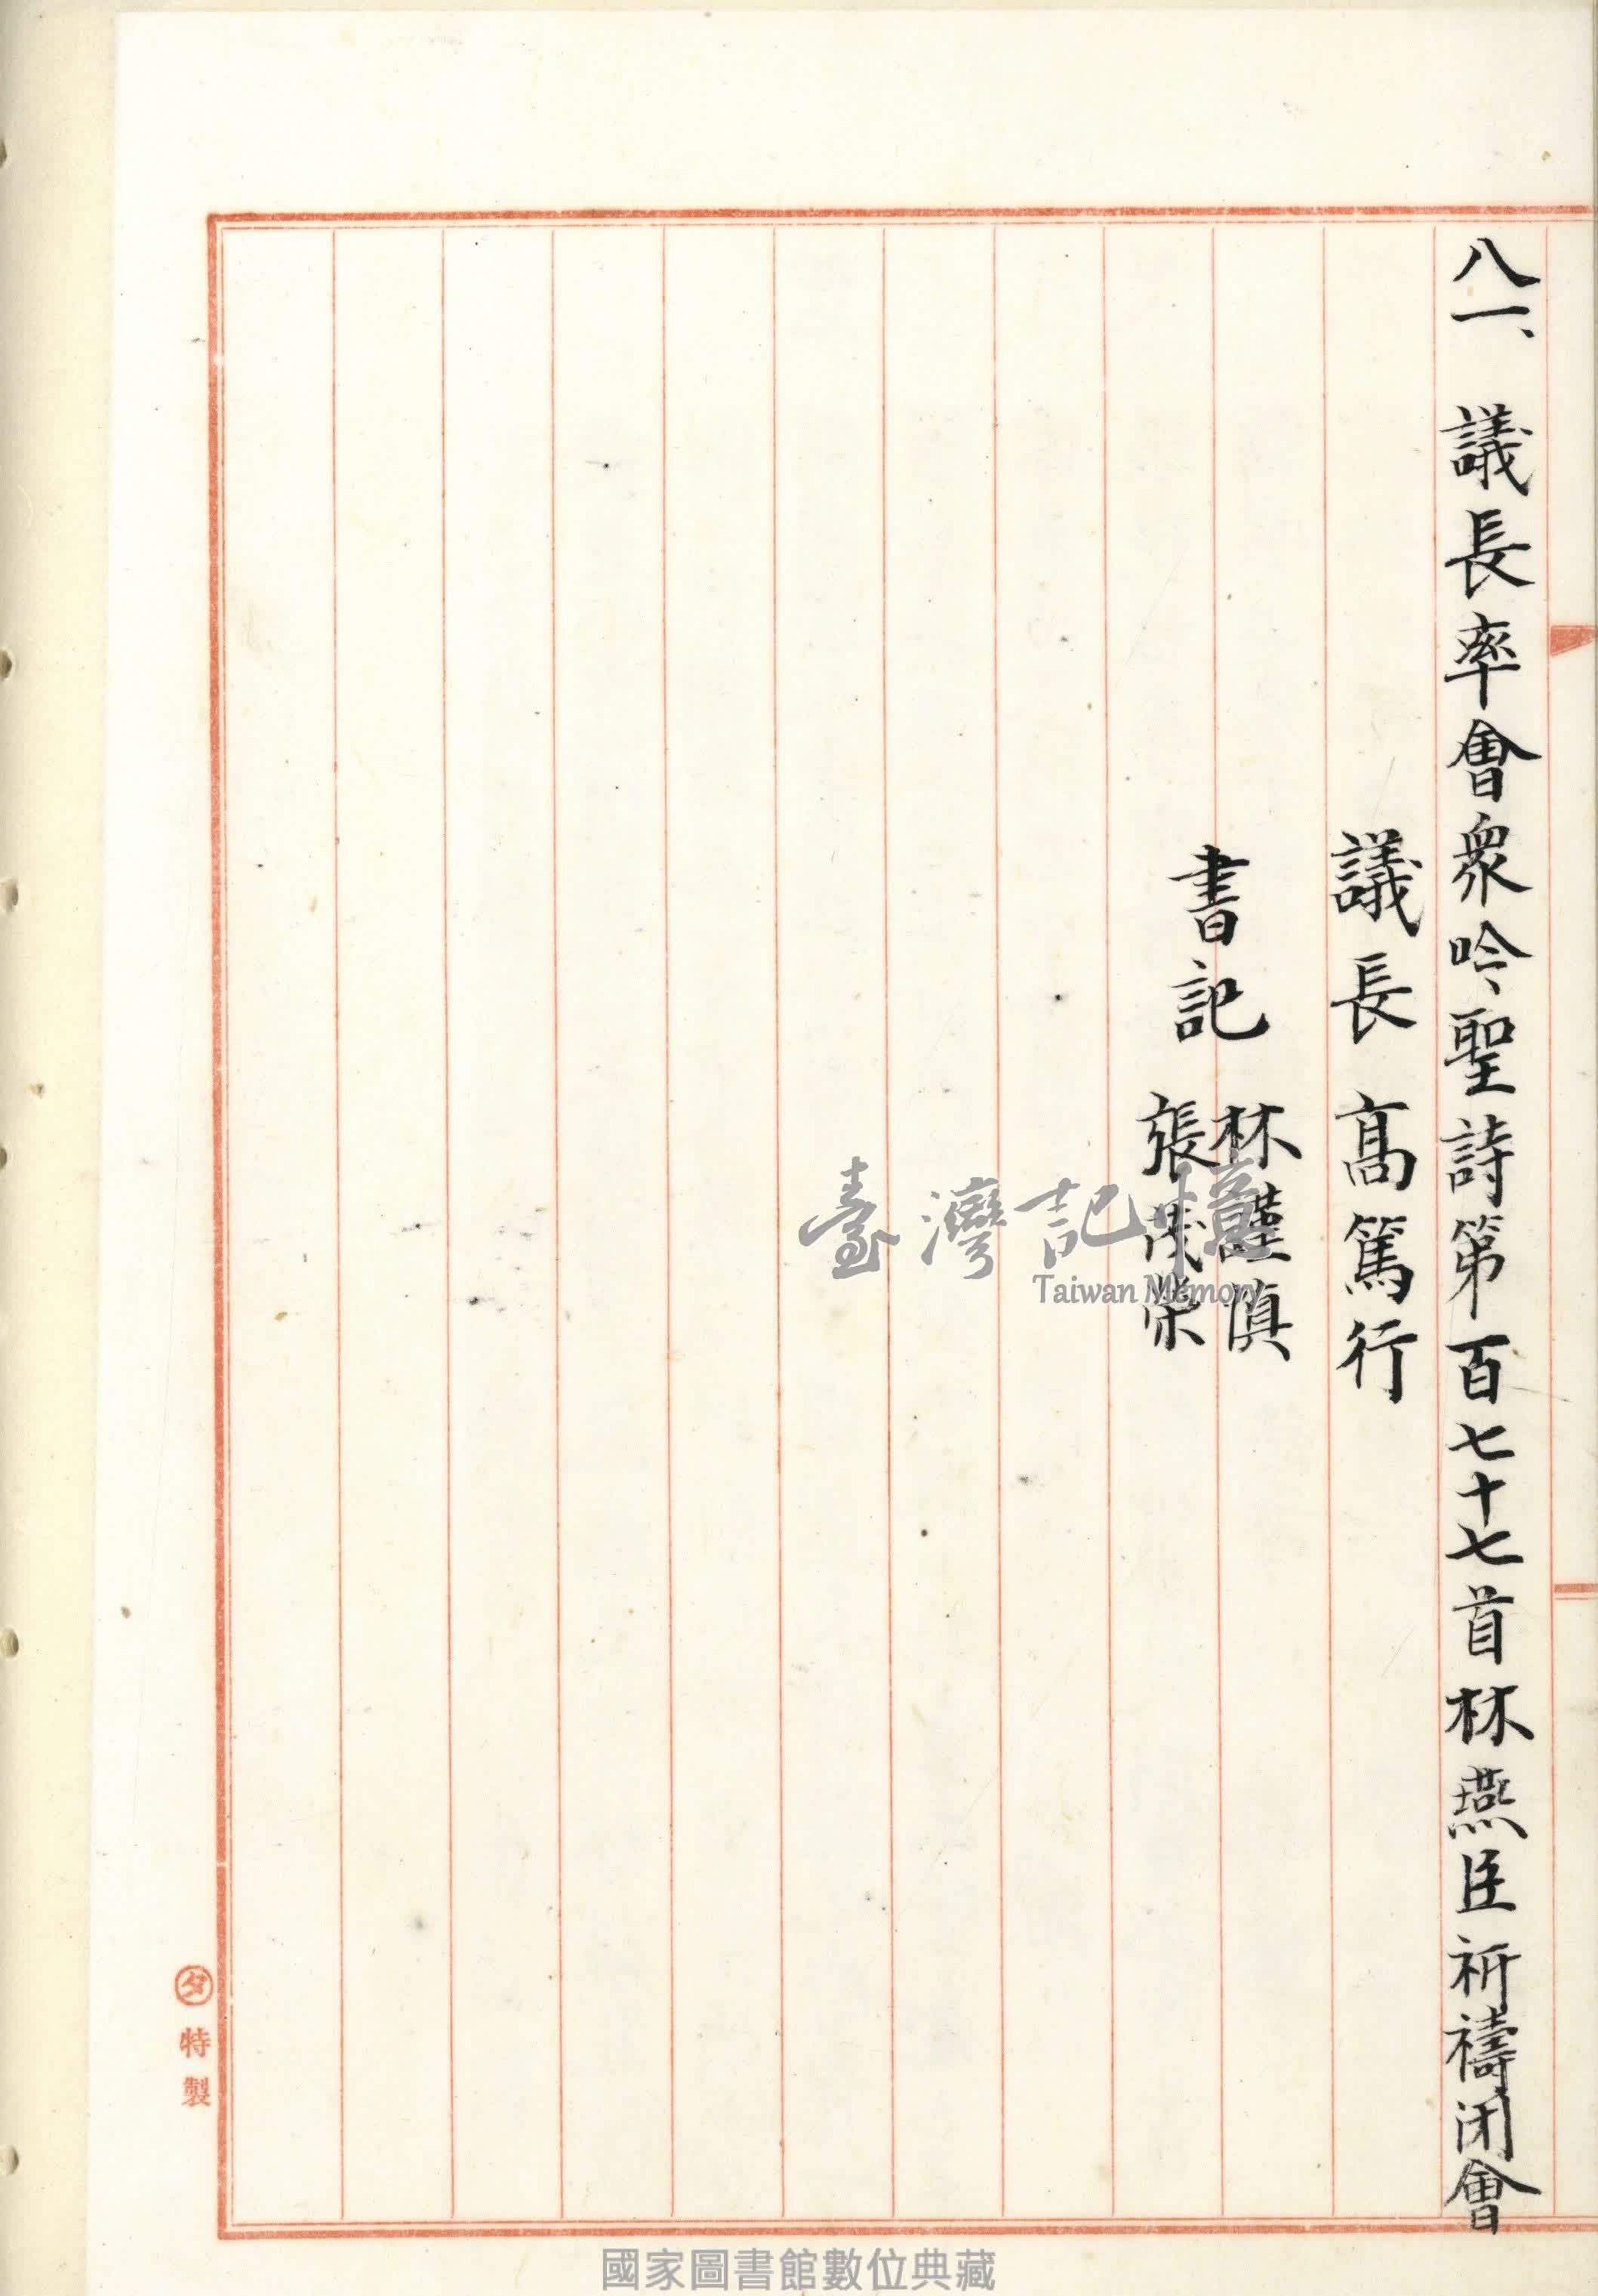 八一、議長率會衆吟聖詩第百七十七首林燕臣祈禱闭會
議長 高篤行
書記 林謹慎
張茂榮
臺灣記憶
Taiwan Memory
タ特製
國家圖書館數位典藏